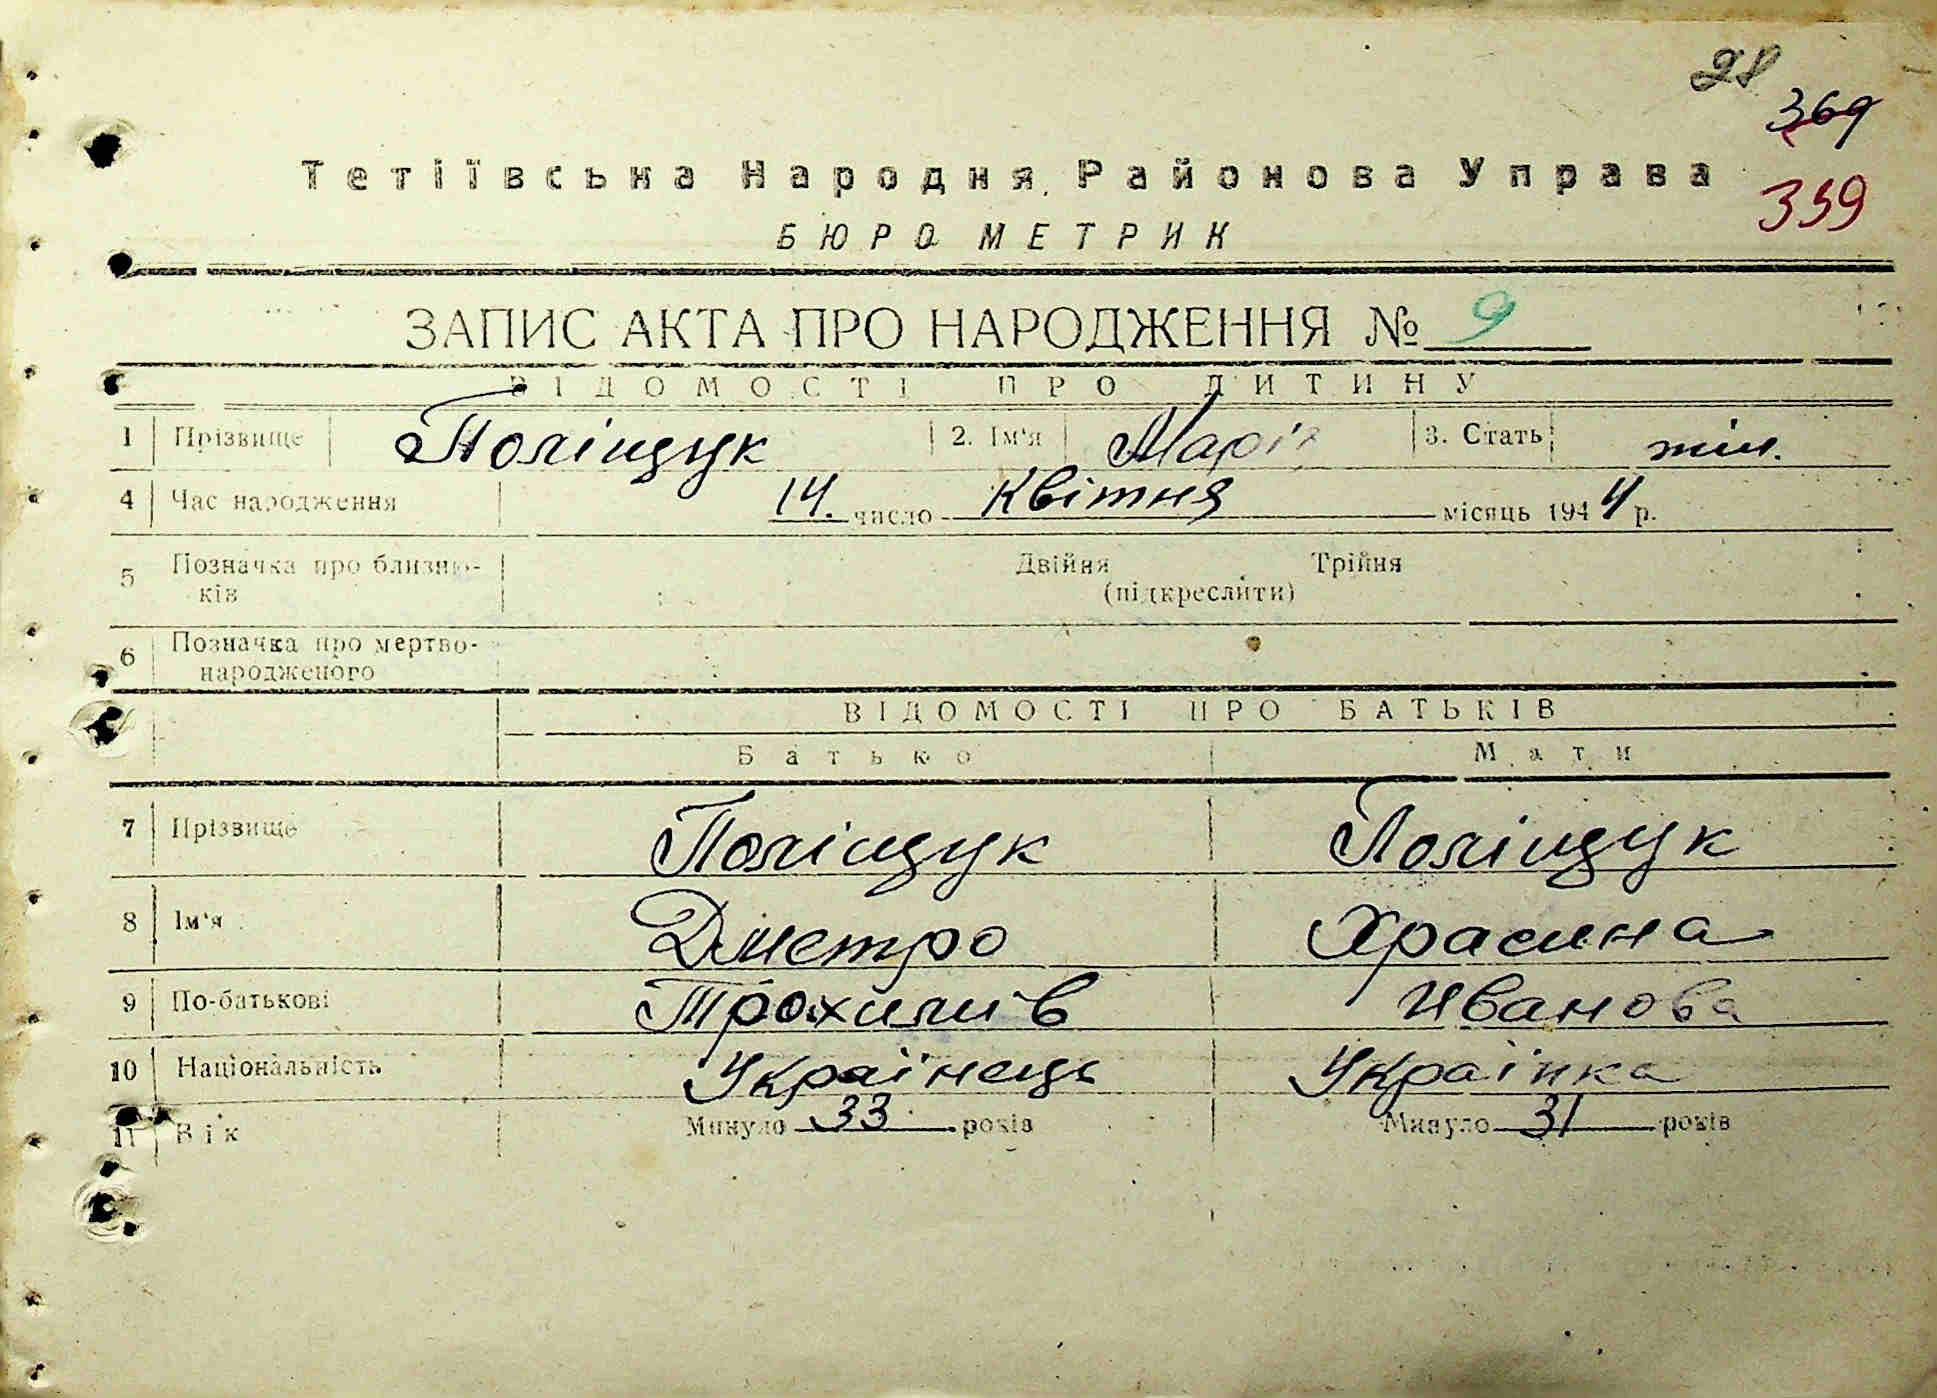 28
369
359
Тетіївська Народня Районова Управа
БЮРО МЕТРИК
ЗАПИС АКТА ПРО НАРОДЖЕННЯ № 9
ВІДОМОСТІ ПРО ДИТИНУ
1 Прізвище Поліщук 2. Ім'я Марія 3. Стать жін.
4 Час народження 14. число Квітня місяць 1944 р.
5 Позначка про близню- Двійня Трійня
ків (підкреслити)
6 Позначка про мертво-
народженого
ВІДОМОСТІ ПРО БАТЬКІВ
Батько Мати
7 Прізвище Поліщук Поліщук
8 Ім'я Дметро Храсина
9 По-батькові Трохимів Иванова
10 Національність Українець Українка
11 Вік Минуло 33 років Минуло 31 років